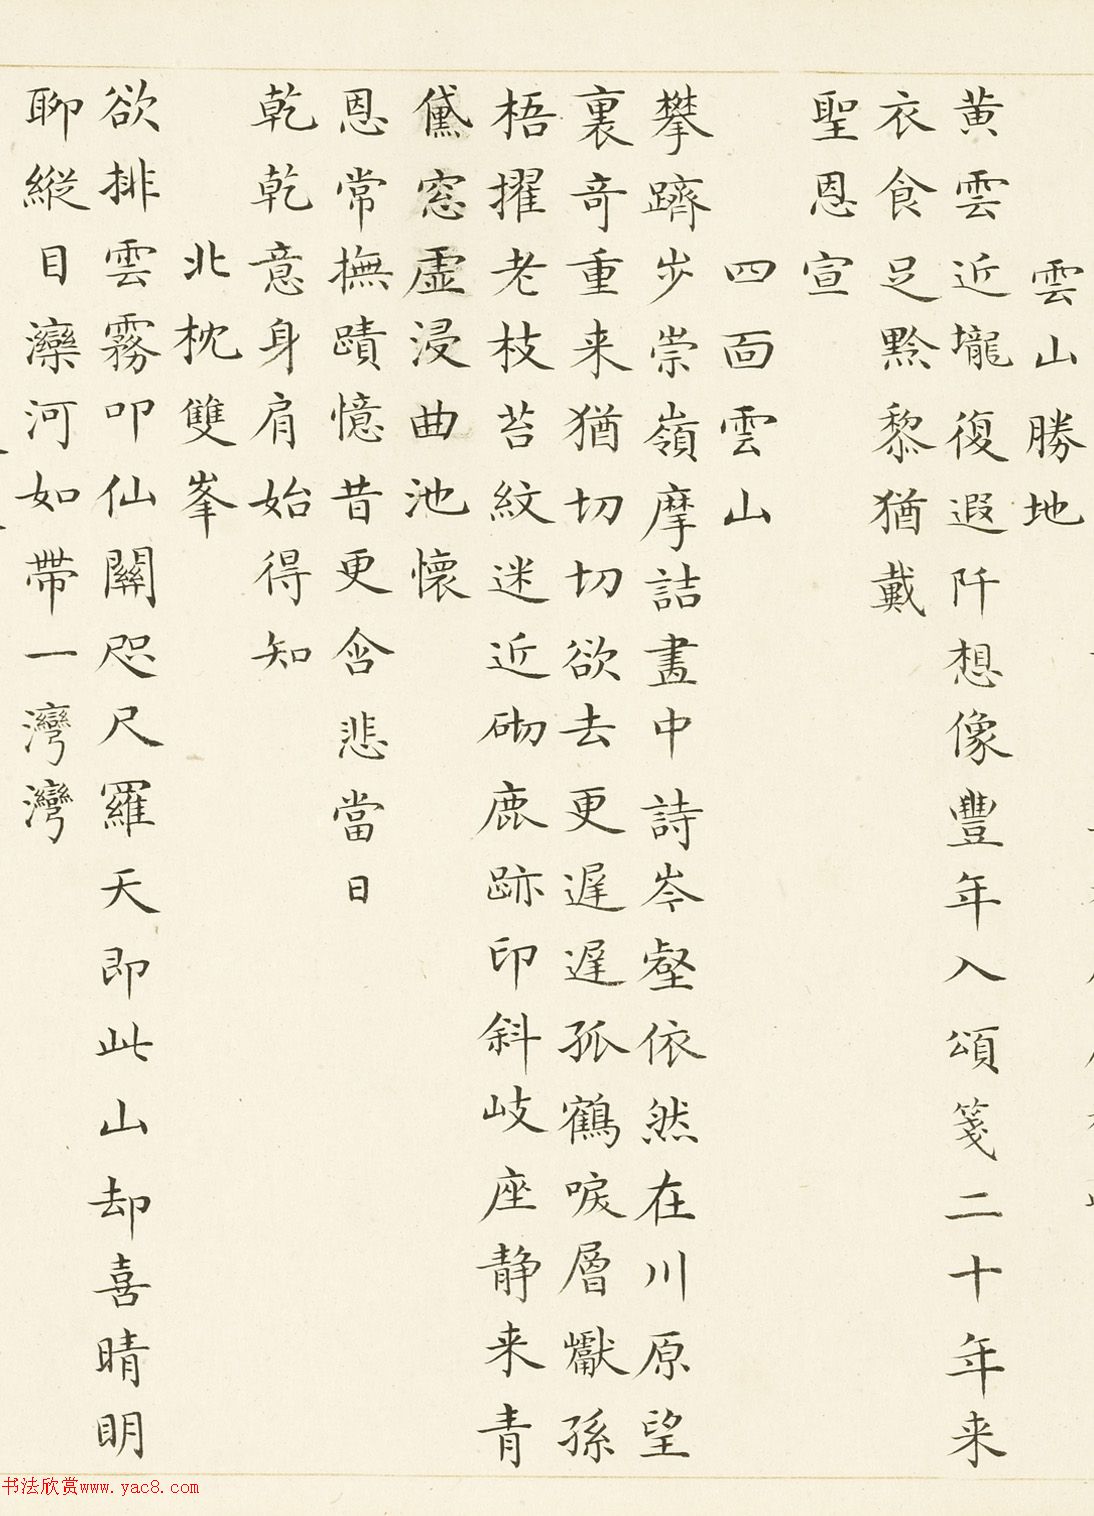 雲山勝地
黄雲近壠復遐阡想像豐年入頌箋二十年来
衣食足黔黎猶戴
聖恩宣
四面雲山
攀躋步崇嶺摩詰畫中詩岑壑依然在川原望
裏竒重来猶切切欲去更遲遲孤鶴唳層巘孫
梧擢老枝苔紋迷近砌鹿跡印斜岐座静来青
黛窓虚浸曲池懷
恩常撫蹟憶昔更含悲當日
乾乾意身肩始得知
北枕雙峯
欲排雲霧叩仙關咫尺羅天即此山却喜晴明
聊縱目灤河如帶一灣灣
书法欣赏www.yac8.com